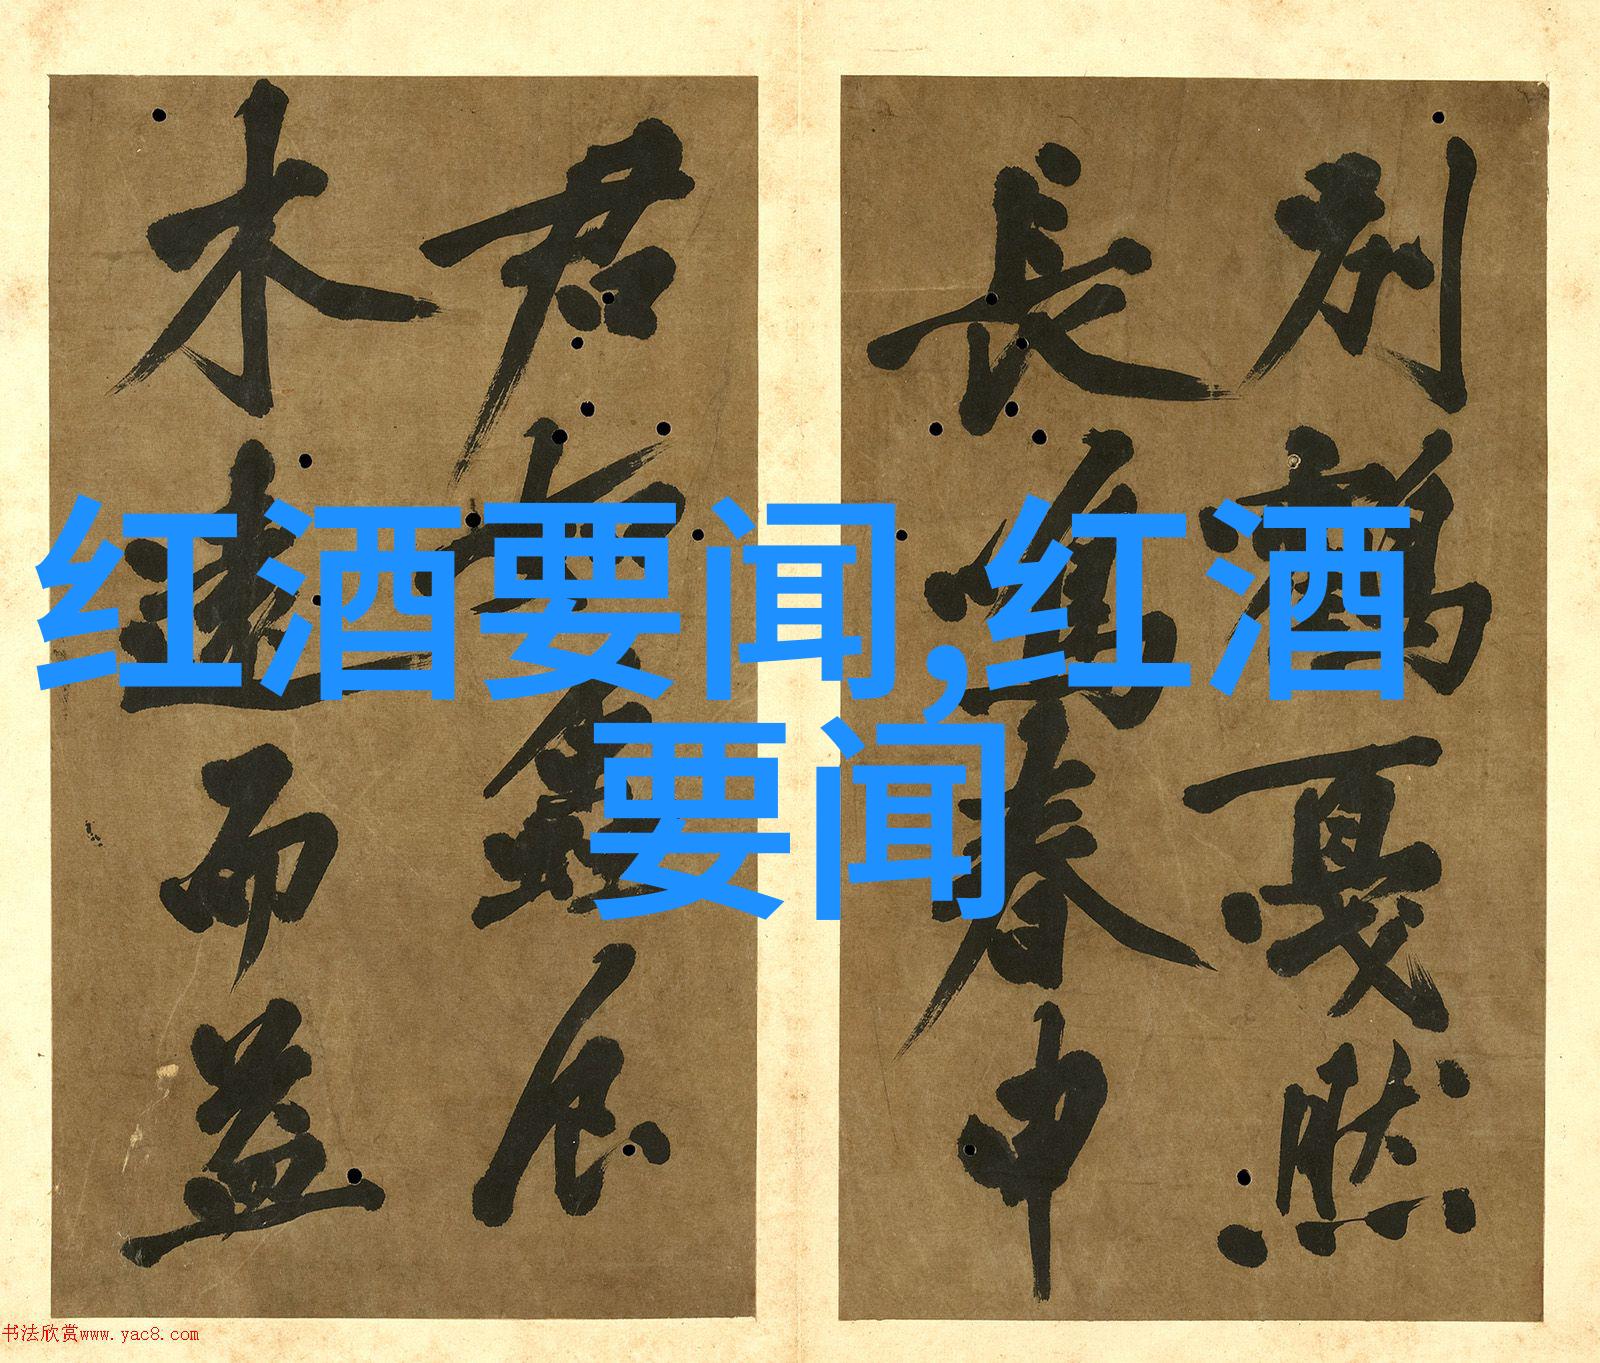 別鶴戛然
長鳴春申
君
木而益
红酒要闻,红酒
要闻
书法欣赏www.yac8.com